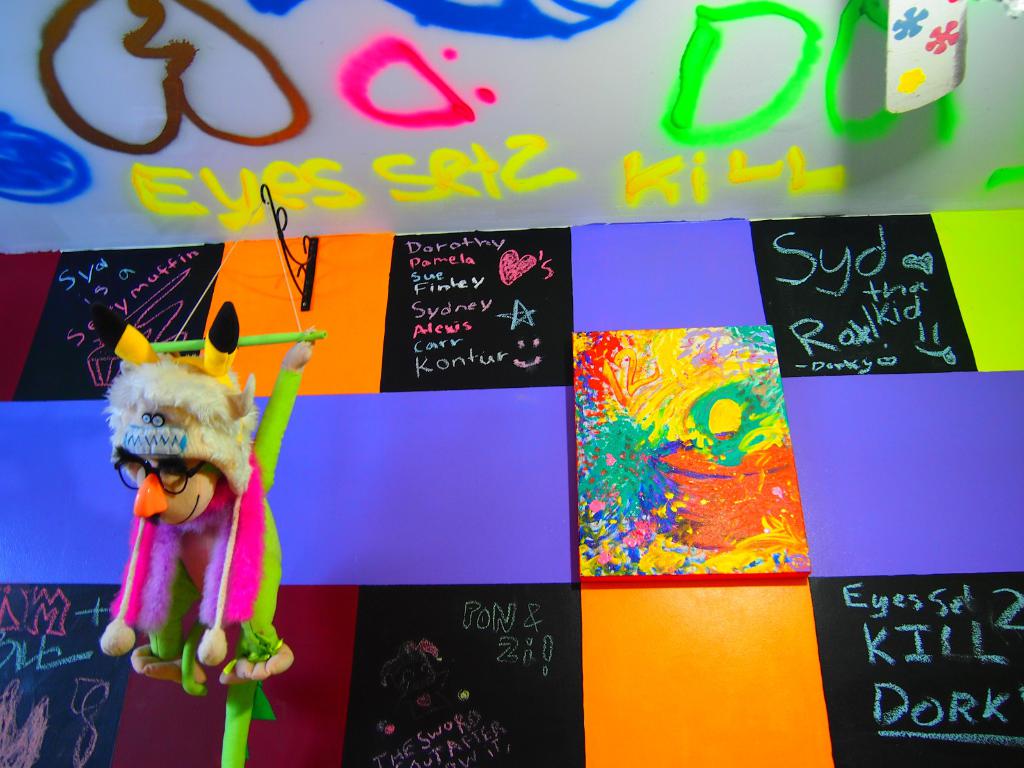 Eyes Set2 Kill
Syd
is a
Sexymuffin
Dorothy
Pamela
Sue
Finley
Sydney
Alexis
Carr
Kontur
♥'s
Syd
tha
Kid
Rox!
-Dorky
PON &
Zi!
THE SWORD
OUT AFTER
Eyes Set 2
KILL
DORK